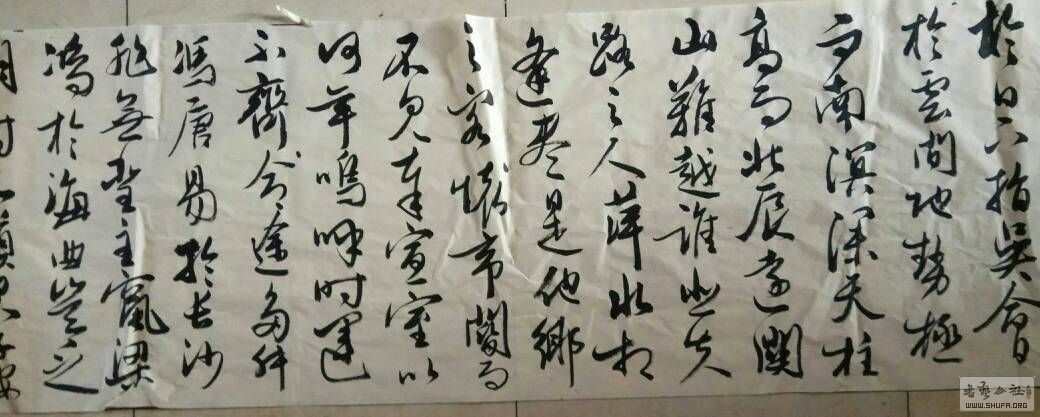 於日下指吳會
於雲間地勢極
而南溟深天柱
高而北辰遠關
山難越誰悲失
路之人萍水相
逢盡是他鄉
之客懷帝閽而
不見奉宣室以
何年嗚呼時運
不齊命途多舛
馮唐易於長沙
非無聖主竄梁
鴻於海曲豈乏
明時賴君子安
書藝公社
WWW.SHUFA.ORG